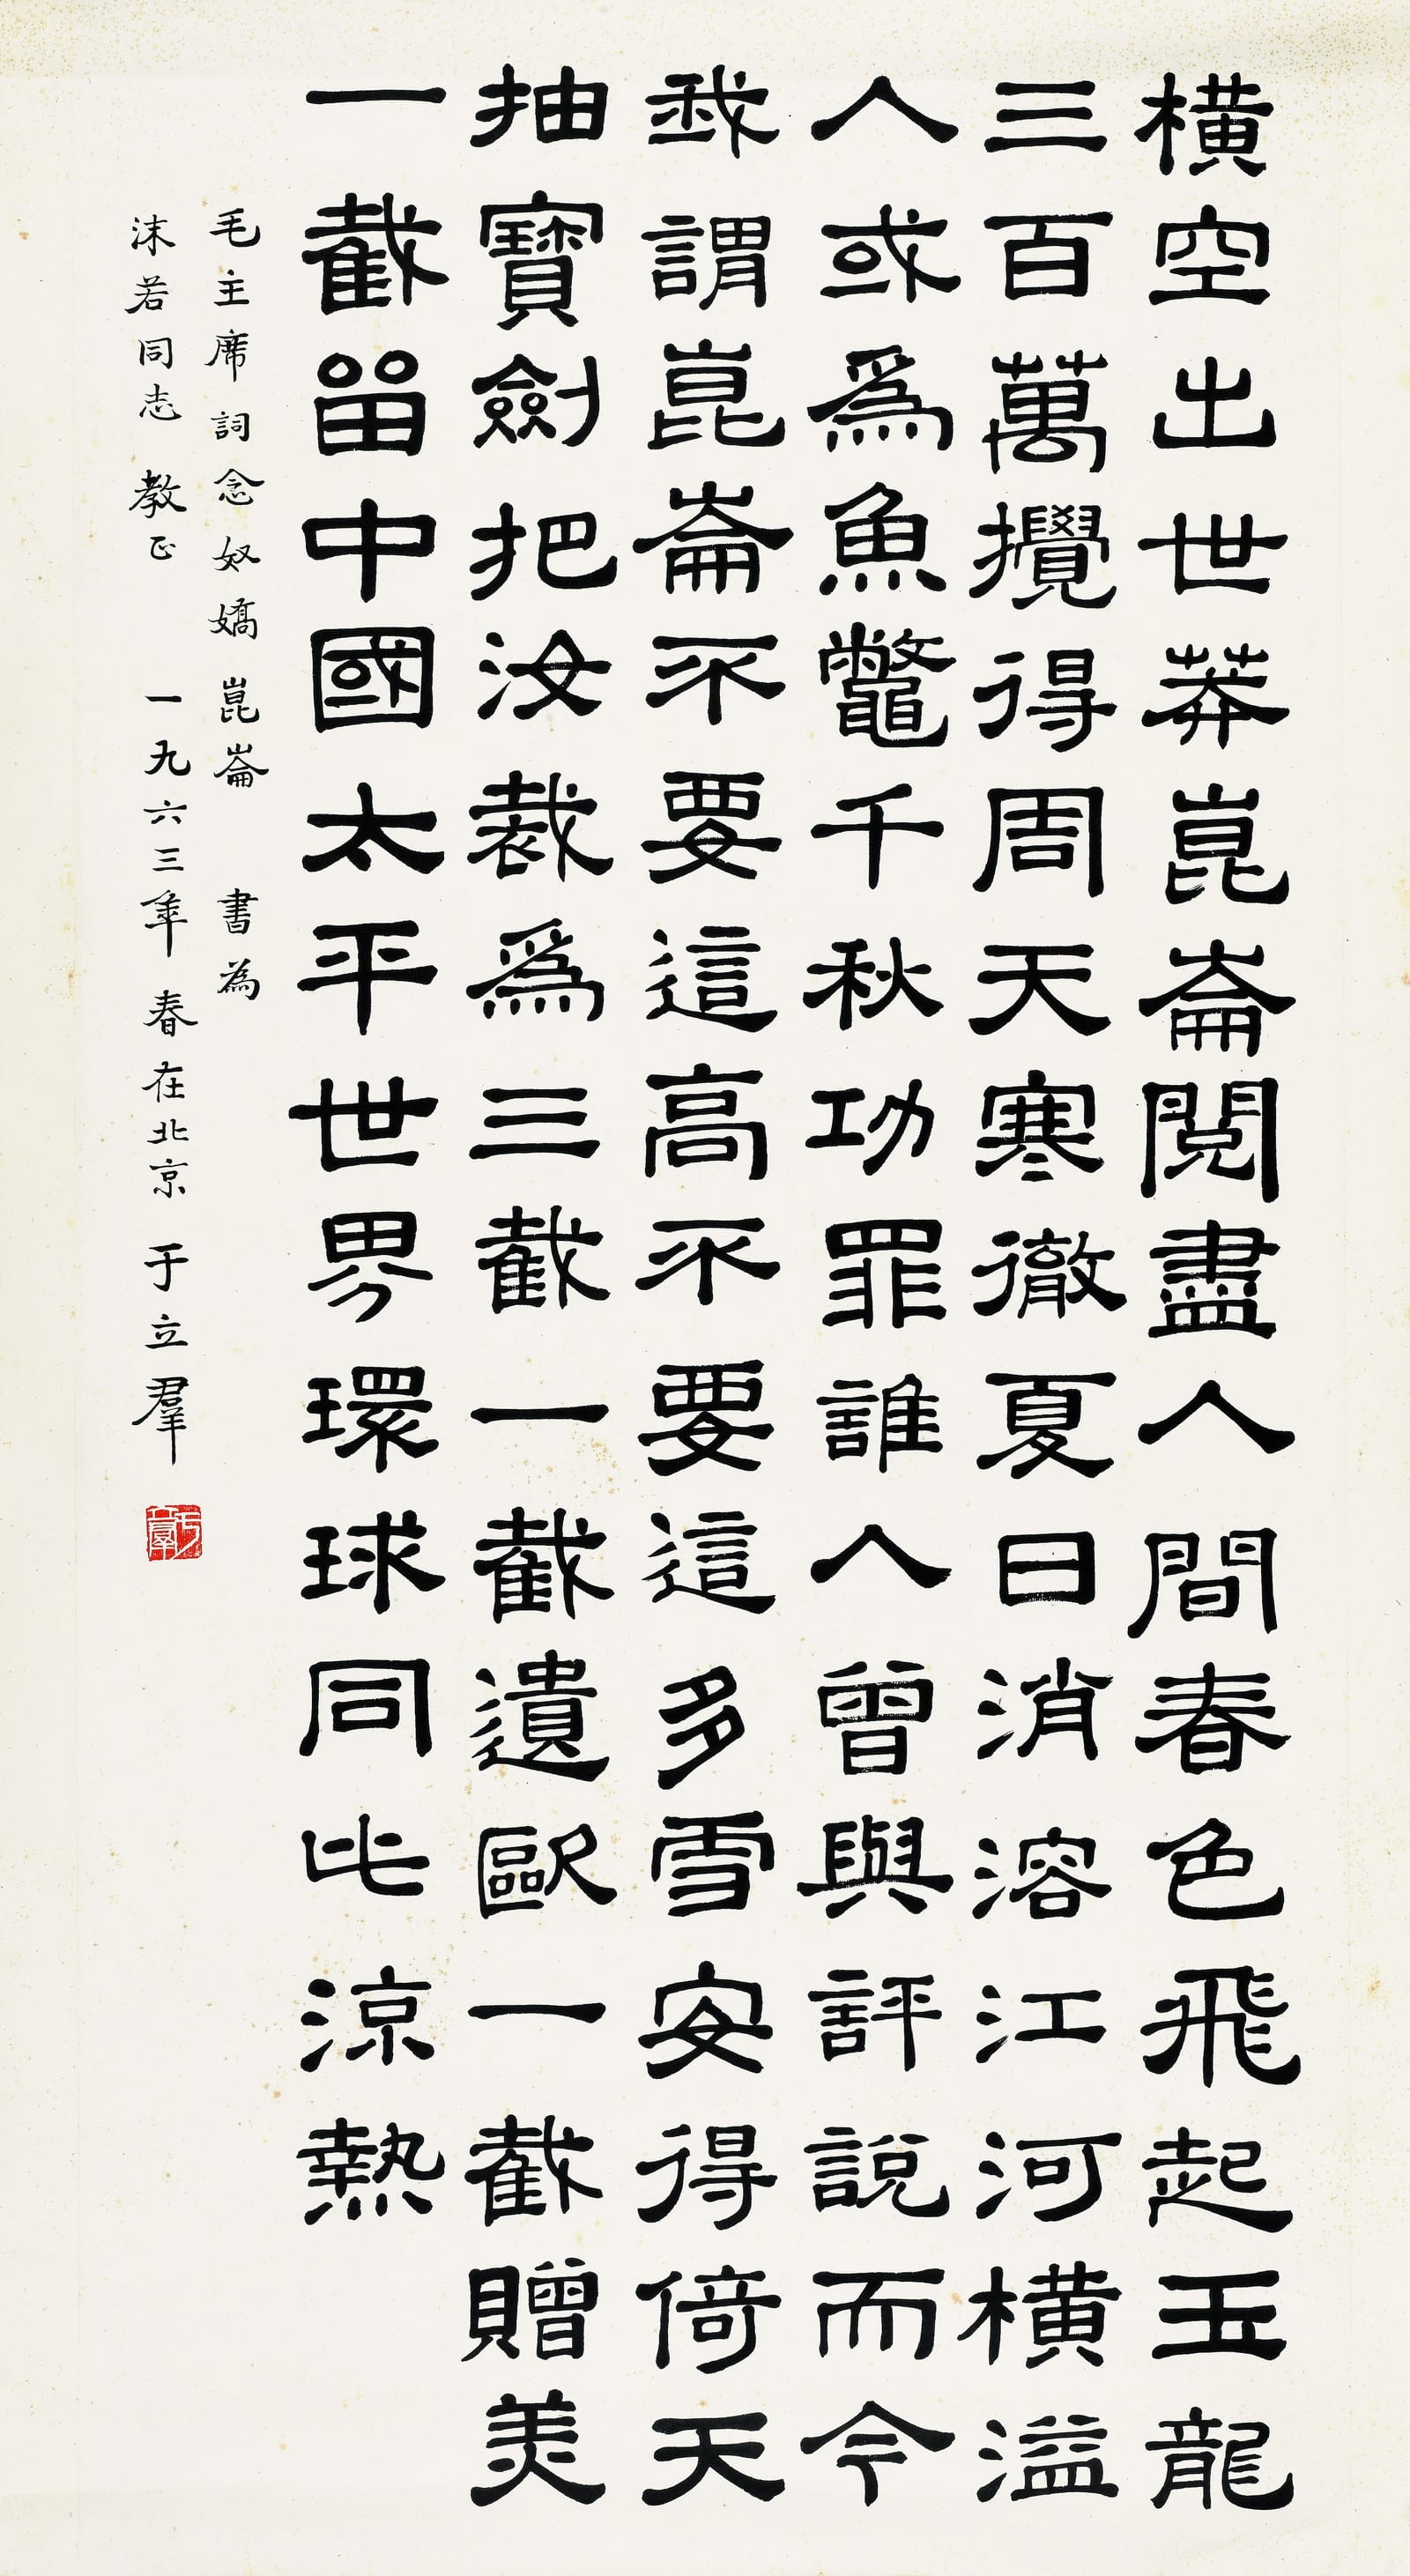 橫空出世莽崑崙閱盡人間春色飛起玉龍
三百萬攪得周天寒徹夏日消溶江河橫溢
人或爲魚鼈千秋功罪誰人曾與評說而今
我謂崑崙不要這高不要這多雪安得倚天
抽寶劍把汝裁爲三截一截遺歐一截贈美
一截畱中國太平世界環球同此涼熱
毛主席詞念奴嬌崑崙 書為
沫若同志 教正 一九六三年 春在北京 于立羣
于立羣